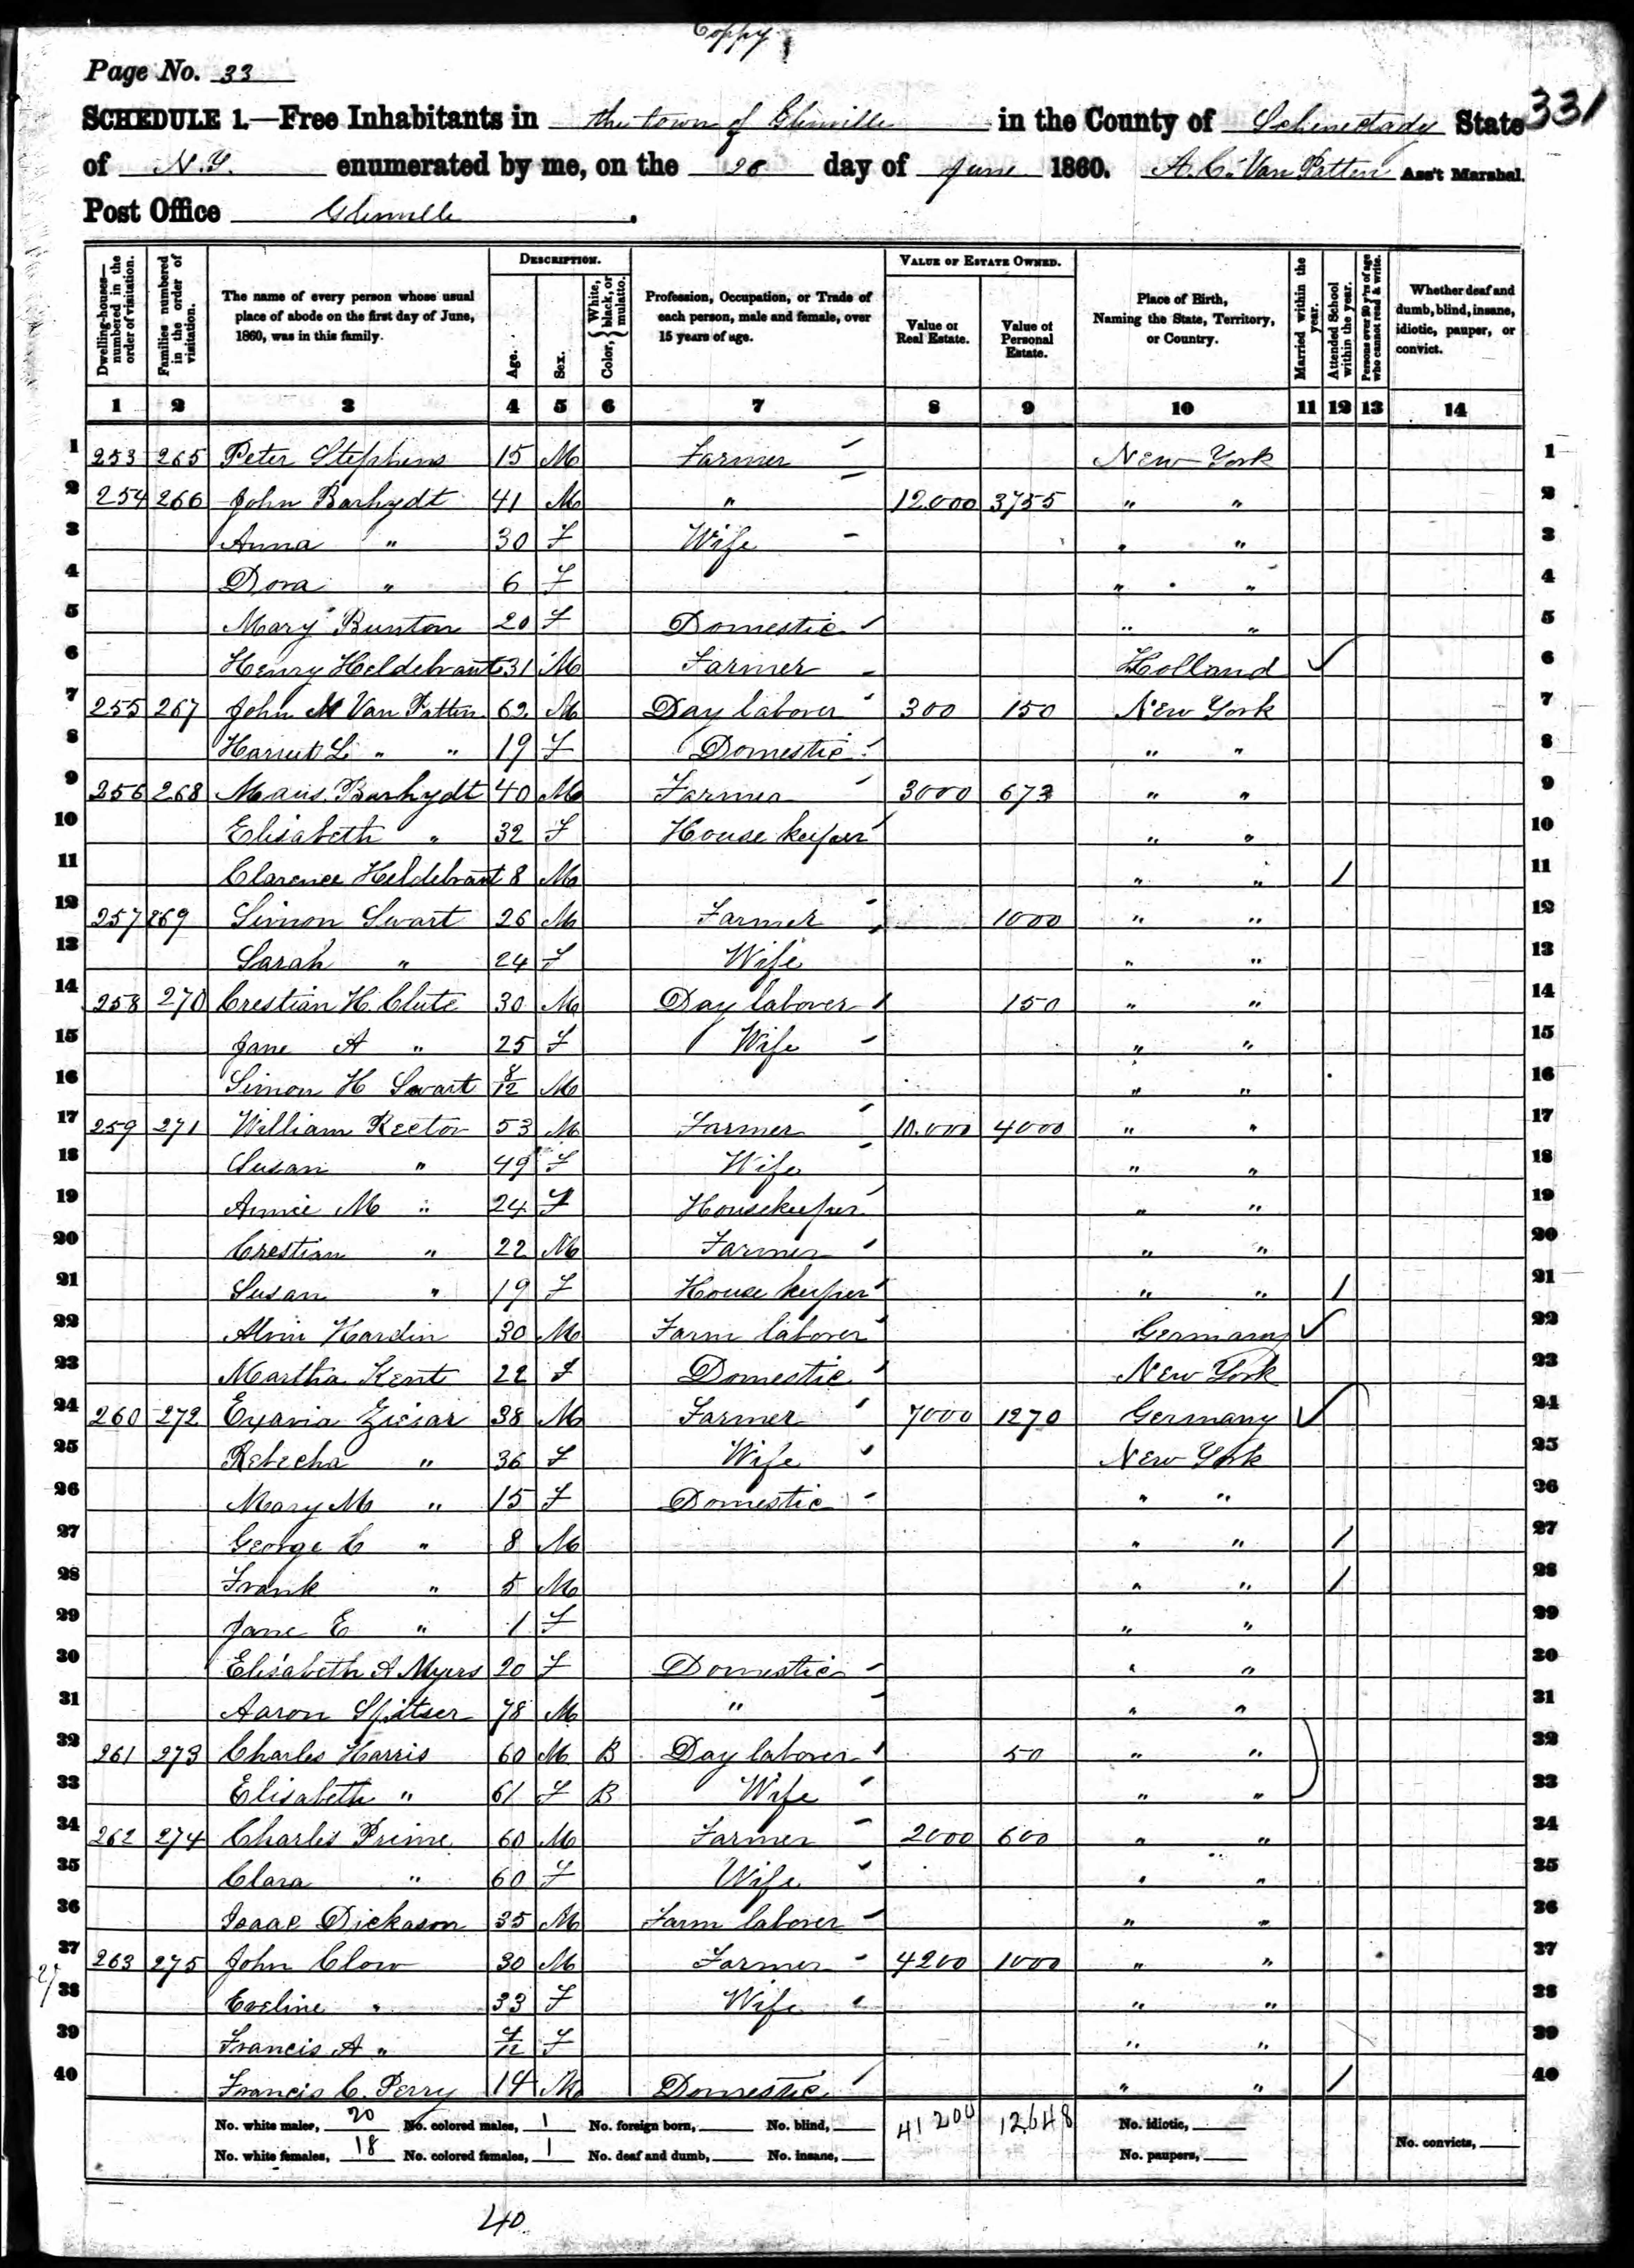 Coppy
Page No. 33
331
SCHEDULE 1.—Free Inhabitants in the town of Glenville in the County of Schenectady State
of N.Y. enumerated by me, on the 26 day of June 1860. A. C. Van Patten Ass't Marshal.
Post Office Glenville.
Dwelling-houses—numbered in the order of visitation. Families numbered in the order of visitation. The name of every person whose usual place of abode on the first day of June, 1860, was in this family. DESCRIPTION. Age. Sex. Color, {White, black, or mulatto. Profession, Occupation, or Trade of each person, male and female, over 15 years of age. VALUE OF ESTATE OWNED. Value of Real Estate. Value of Personal Estate. Place of Birth, Naming the State, Territory, or Country. Married within the year. Attended School within the year. Persons over 20 y'rs of age who cannot read & write. Whether deaf and dumb, blind, insane, idiotic, pauper, or convict.
1 2 3 4 5 6 7 8 9 10 11 12 13 14
1 253 265 Peter Stephens 15 M Farmer New York 1
2 254 266 John Barhydt 41 M " 12.000 3755 " " 2
3 Anna " 30 F Wife " " 3
4 Dora " 6 F " " 4
5 Mary Bunton 20 F Domestic " " 5
6 Henry Heldebrant 31 M Farmer Holland ✓ 6
7 255 267 John M Van Patten 62 M Day laborer 300 150 New York 7
8 Harriet L " " 19 F Domestic " " 8
9 256 268 Maus Barhydt 40 M Farmer 3000 673 " " 9
10 Elisabeth " 32 F House keeper " " 10
11 Clarence Heldebrant 8 M " " / 11
12 257 269 Simon Swart 26 M Farmer 1000 " " 12
13 Sarah " 24 F Wife " " 13
14 258 270 Crestian H. Clute 30 M Day laborer 150 " " 14
15 Jane A " 25 F Wife " " 15
16 Simon H Swart 8/12 M " " 16
17 259 271 William Rector 53 M Farmer 10.000 4000 " " 17
18 Susan " 49 F Wife " " 18
19 Annie M " 24 F Housekeeper " " 19
20 Crestian " 22 M Farmer " " 20
21 Susan " 19 F House keeper " " / 21
22 Alvin Hardin 30 M Farm laborer Germany ✓ 22
23 Martha Kent 22 F Domestic New York 23
24 260 272 38 M Farmer 7000 1270 Germany ✓ 24
25 Rebecha " 36 F Wife New York 25
26 Mary M " 15 F Domestic " " 26
27 George C " 8 M " " / 27
28 Frank " 5 M " " / 28
29 Jane E " 1 F " " 29
30 Elisabeth A Myers 20 F Domestic " " 30
31 Aaron Spitser 78 M " " " 31
32 261 273 Charles Harris 60 M B Day laborer 50 " " 32
33 Elisabeth " 61 F B Wife " " 33
34 262 274 Charles Prime 60 M Farmer 2000 600 " " 34
35 Clara " 60 F Wife " " 35
36 Isaac Dickason 35 M Farm laborer " " 36
37 263 275 John Clow 30 M Farmer 4200 1000 " " 37
38 Eveline " 33 F Wife " " 38
39 Francis A " F " " 39
40 Francis C. Perry 14 M Domestic " " / 40
No. white males, 20 No. colored males, 1 No. foreign born, No. blind, 41200 12,648 No. idiotic,
No. white females, 18 No. colored females, 1 No. deaf and dumb, No. insane, No. paupers, No. convicts,
40